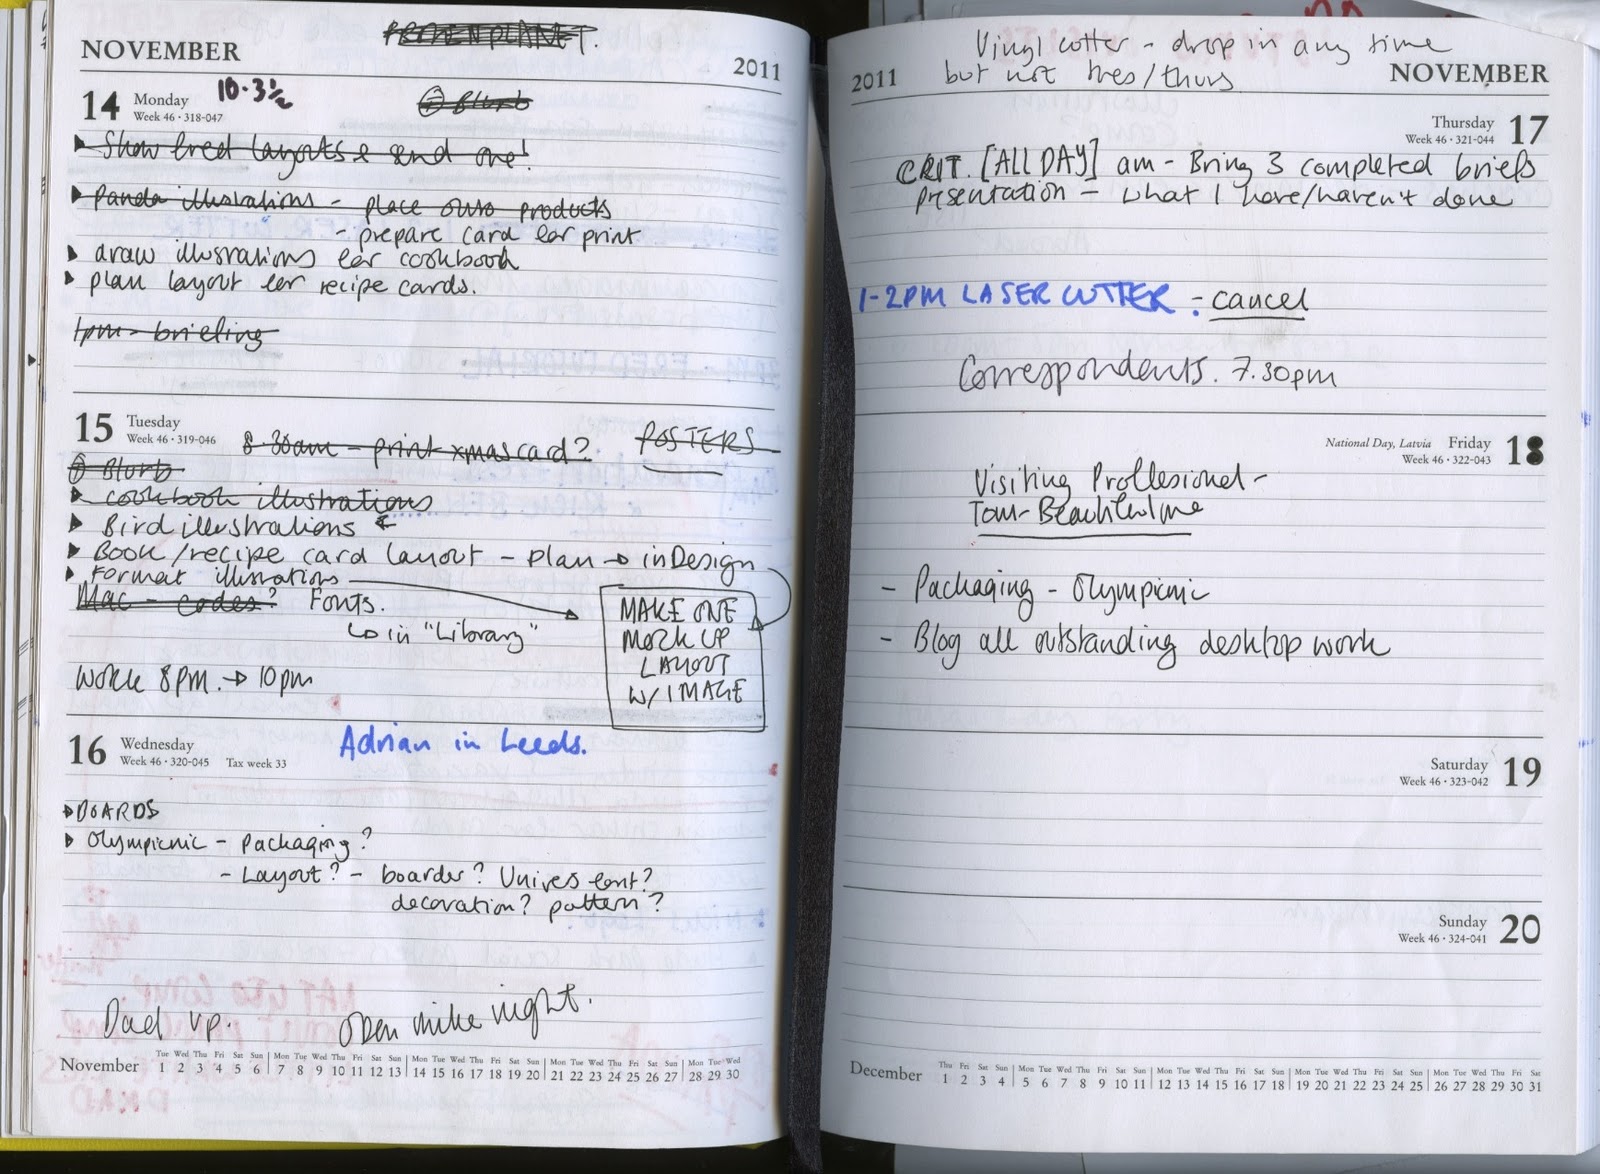 NOVEMBER
2011
14 Monday 10.3½
Week 46 · 318-047
@ Blurb
Show Fred layouts & send one!
Panda illustrations - place onto products
- prepare card for print
draw illustrations for cookbook
plan layout for recipe cards.
1pm - briefing
15 Tuesday
Week 46 · 319-046
8.30am - print xmas card? POSTERS
@ Blurb
cookbook illustrations
Bird illustrations
Book/recipe card layout - plan → inDesign
Format illustrations
Mac - codes? Fonts.
↳ in "Library"
MAKE ONE
MOCK UP
LAYOUT
W/ IMAGE
WORK 8PM. → 10pm
16 Wednesday
Week 46 · 320-045 Tax week 33
Adrian in Leeds.
BOARDS
Olympicnic - Packaging?
- Layout? - boarder? Univers font?
decoration? pattern?
Dad up. Open mike night.
November
Tue Wed Thu Fri Sat Sun Mon Tue Wed Thu Fri Sat Sun Mon Tue Wed Thu Fri Sat Sun Mon Tue Wed Thu Fri Sat Sun Mon Tue Wed
1 2 3 4 5 6 7 8 9 10 11 12 13 14 15 16 17 18 19 20 21 22 23 24 25 26 27 28 29 30
Vinyl cutter - drop in any time
but not tues/thurs
2011
NOVEMBER
Thursday 17
Week 46 · 321-044
CRIT. [ALL DAY] am - Bring 3 completed briefs
presentation - what I have/haven't done
1-2PM LASER CUTTER - cancel
Correspondents. 7.30pm
National Day, Latvia Friday 18
Week 46 · 322-043
Visiting Proffesional -
Tom
- Packaging - Olympicnic
- Blog all outstanding desktop work
Saturday 19
Week 46 · 323-042
Sunday 20
Week 46 · 324-041
December
Thu Fri Sat Sun Mon Tue Wed Thu Fri Sat Sun Mon Tue Wed Thu Fri Sat Sun Mon Tue Wed Thu Fri Sat Sun Mon Tue Wed Thu Fri Sat
1 2 3 4 5 6 7 8 9 10 11 12 13 14 15 16 17 18 19 20 21 22 23 24 25 26 27 28 29 30 31